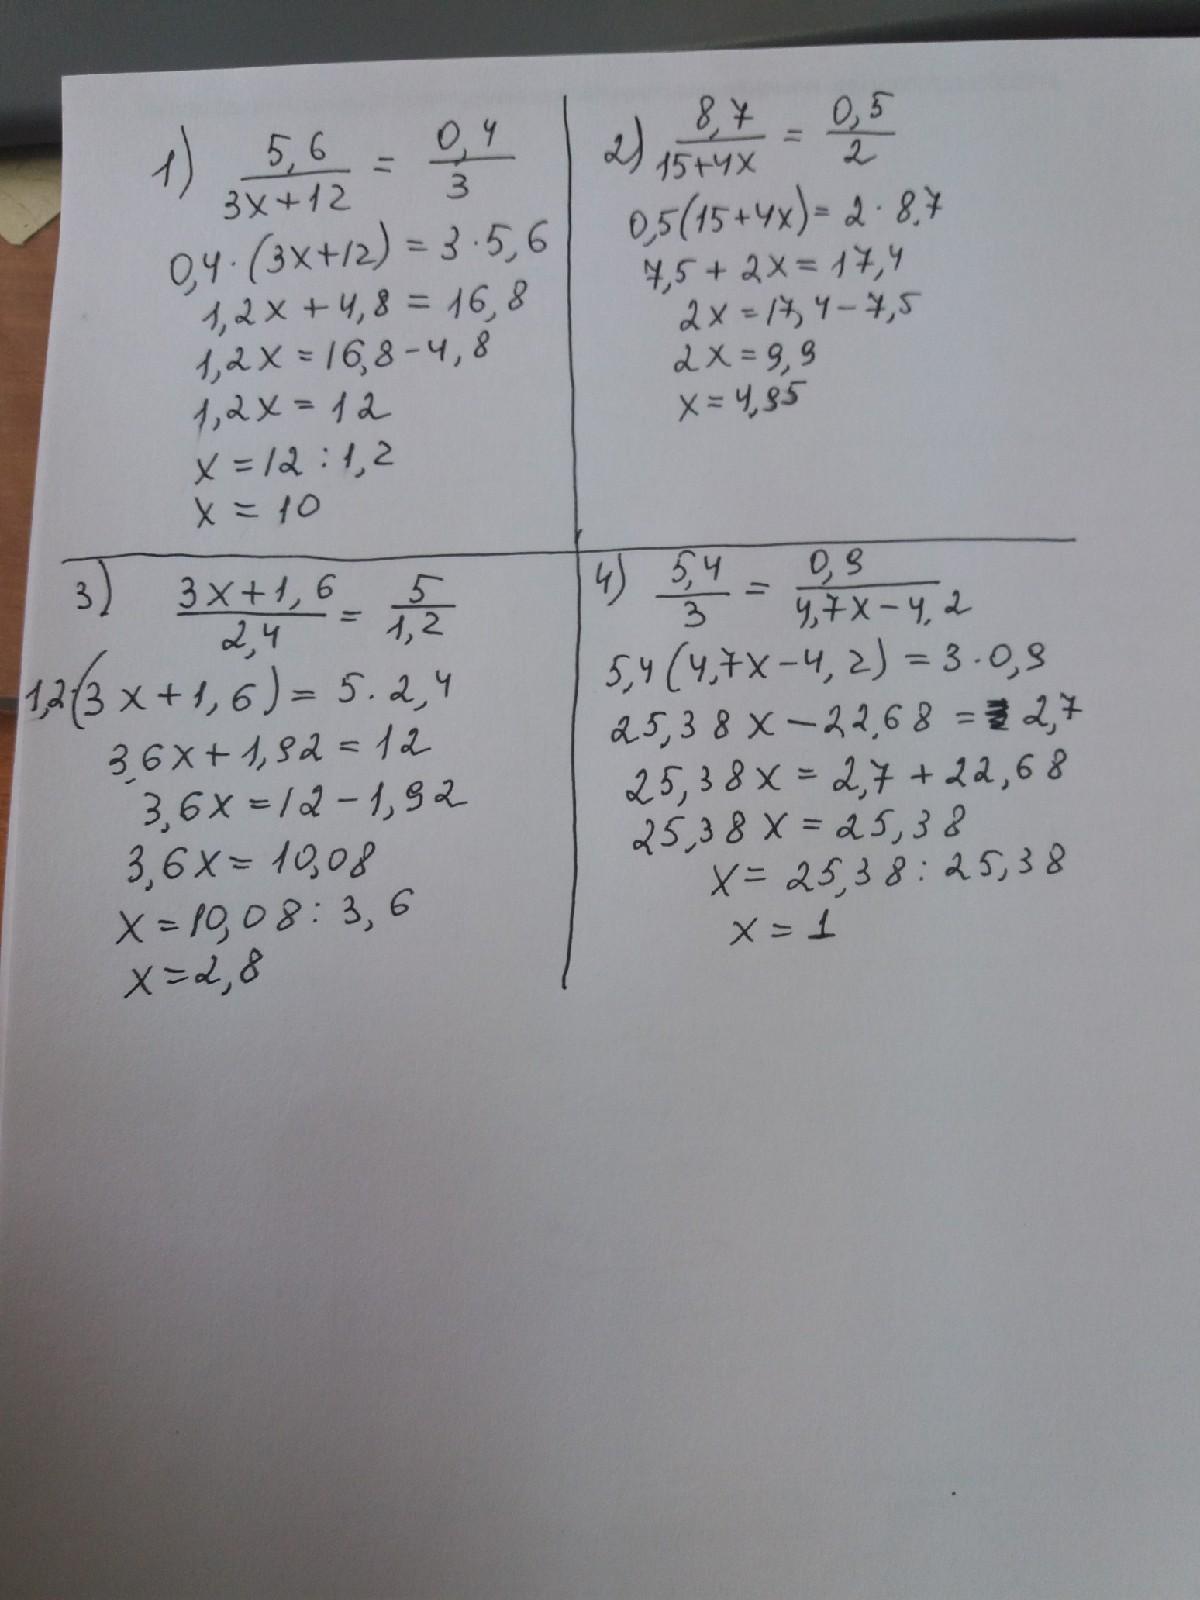 1) 5,6/(3x+12) = 0,4/3
0,4·(3x+12) = 3·5,6
1,2x + 4,8 = 16,8
1,2x = 16,8 - 4,8
1,2x = 12
x = 12 : 1,2
x = 10
2) 8,7/(15+4x) = 0,5/2
0,5(15+4x) = 2·8,7
7,5 + 2x = 17,4
2x = 17,4 - 7,5
2x = 9,9
x = 4,95
3) (3x+1,6)/2,4 = 5/1,2
1,2·(3x+1,6) = 5·2,4
3,6x + 1,92 = 12
3,6x = 12 - 1,92
3,6x = 10,08
x = 10,08 : 3,6
x = 2,8
4) 5,4/3 = 0,9/(4,7x-4,2)
5,4(4,7x-4,2) = 3·0,9
25,38x - 22,68 = 2,7
25,38x = 2,7 + 22,68
25,38x = 25,38
x = 25,38 : 25,38
x = 1